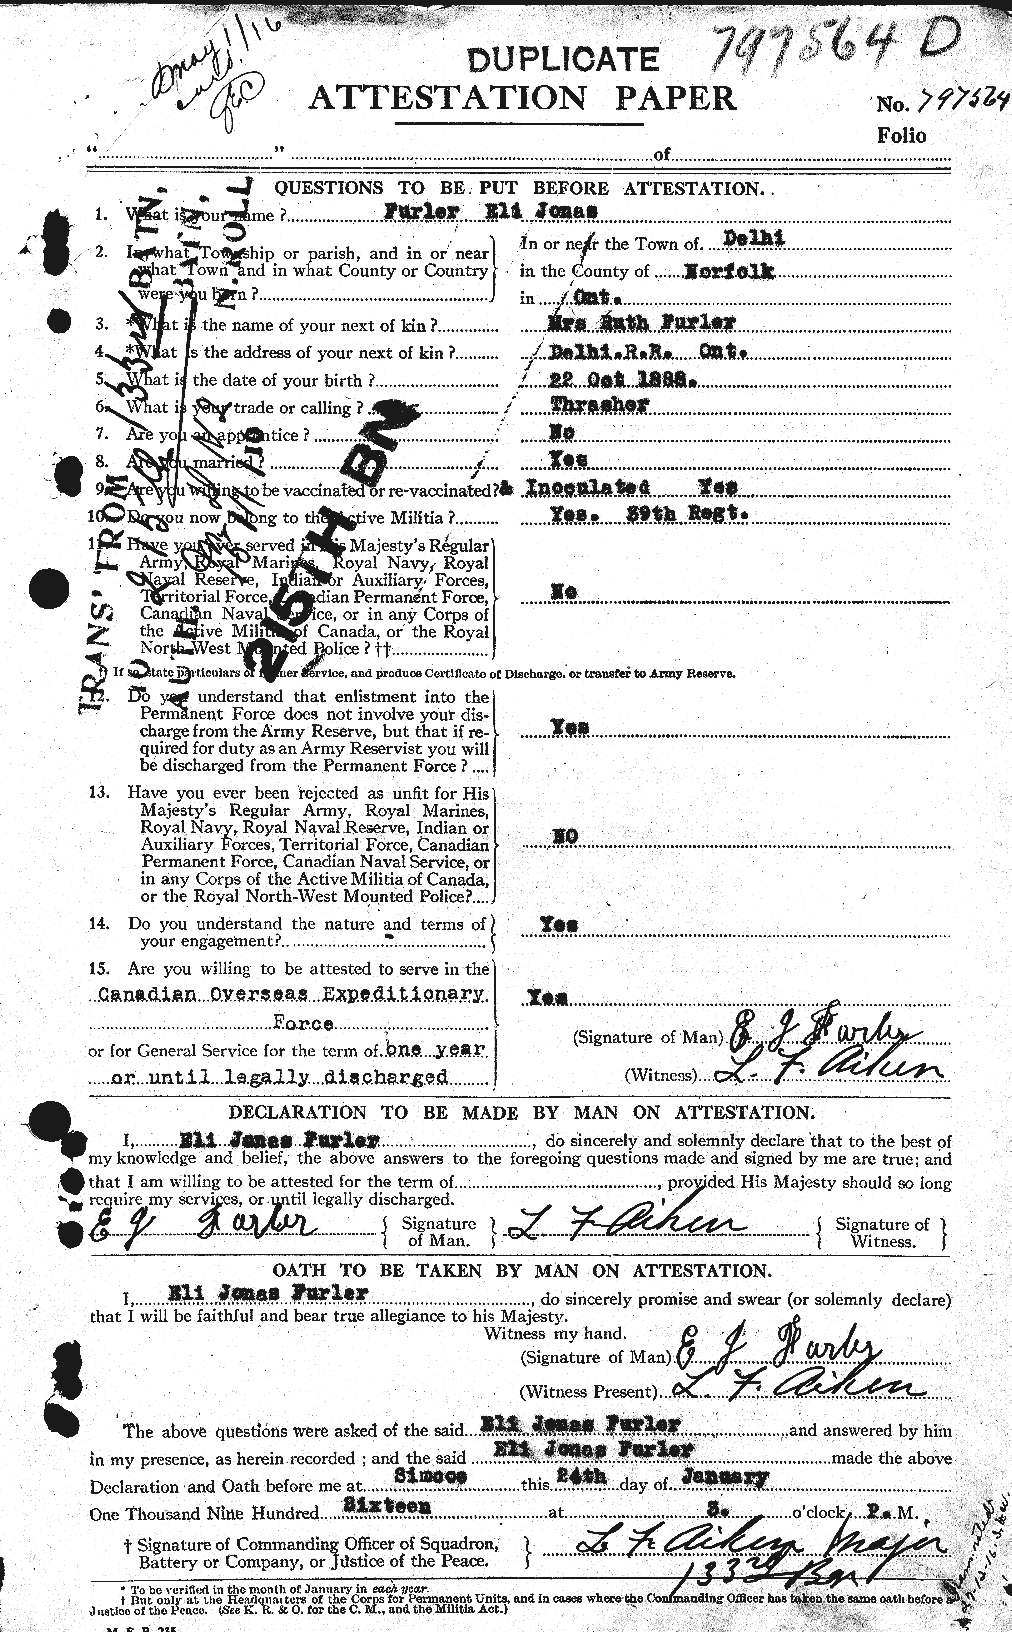 May 1/16
797564 D
DUPLICATE
ATTESTATION PAPER
No. 797564
Folio
“ ” of
QUESTIONS TO BE PUT BEFORE ATTESTATION.
1. What is your name ? Furler Eli Jonas
2. In what Township or parish, and in or near
what Town and in what County or Country
were you born ?
In or near the Town of. Delhi
in the County of Norfolk
in Ont.
3. *What is the name of your next of kin ? Mrs Ruth Furler
4. *What is the address of your next of kin ? Delhi.R.R. Ont.
5. What is the date of your birth ? 22 Oct 1888.
6. What is your trade or calling ? Thrasher
7. Are you an apprentice ? No
8. Are you married ? Yes
9. Are you willing to be vaccinated or re-vaccinated? & Inoculated Yes
10. Do you now belong to the Active Militia ? Yes. 39th Regt.
11. Have you ever served in His Majesty's Regular
Army, Royal Marines, Royal Navy, Royal
Naval Reserve, Indian or Auxiliary Forces,
Territorial Force, Canadian Permanent Force,
Canadian Naval Service, or in any Corps of
the Active Militia of Canada, or the Royal
North-West Mounted Police ? ††
No
†† If so, state particulars of former Service, and produce Certificate of Discharge, or transfer to Army Reserve.
12. Do you understand that enlistment into the
Permanent Force does not involve your dis-
charge from the Army Reserve, but that if re-
quired for duty as an Army Reservist you will
be discharged from the Permanent Force ?
Yes
13. Have you ever been rejected as unfit for His
Majesty's Regular Army, Royal Marines,
Royal Navy, Royal Naval Reserve, Indian or
Auxiliary Forces, Territorial Force, Canadian
Permanent Force, Canadian Naval Service, or
in any Corps of the Active Militia of Canada,
or the Royal North-West Mounted Police?
NO
14. Do you understand the nature and terms of
your engagement?
Yes
15. Are you willing to be attested to serve in the
Canadian Overseas Expeditionary
Force
Yes
or for General Service for the term of one year
or until legally discharged
(Signature of Man) E J Furler
(Witness) L. F. Aiken
TRANS' FROM 133rd BATN,
TO 215th BATN,
AUTH,
N. ROLL
215TH BN
DECLARATION TO BE MADE BY MAN ON ATTESTATION.
I, Eli Jonas Furler, do sincerely and solemnly declare that to the best of
my knowledge and belief, the above answers to the foregoing questions made and signed by me are true; and
that I am willing to be attested for the term of, provided His Majesty should so long
require my services, or until legally discharged.
E J Furler { Signature of Man. } L F Aiken { Signature of Witness. }
OATH TO BE TAKEN BY MAN ON ATTESTATION.
I, Eli Jonas Furler, do sincerely promise and swear (or solemnly declare)
that I will be faithful and bear true allegiance to his Majesty.
Witness my hand.
(Signature of Man) E J Furler
(Witness Present) L. F. Aiken
The above questions were asked of the said Eli Jonas Furler and answered by him
in my presence, as herein recorded ; and the said Eli Jonas Furler made the above
Declaration and Oath before me at Simcoe this 24th day of January
One Thousand Nine Hundred Sixteen at 3. o'clock, P.M.
† Signature of Commanding Officer of Squadron,
Battery or Company, or Justice of the Peace.
L F Aiken Major
133rd Bn
* To be verified in the month of January in each year.
† But only at the Headquarters of the Corps for Permanent Units, and in cases where the Commanding Officer has taken the same oath before a
Justice of the Peace. (See K. R. & O. for the C. M., and the Militia Act.)
M. F. B. 235